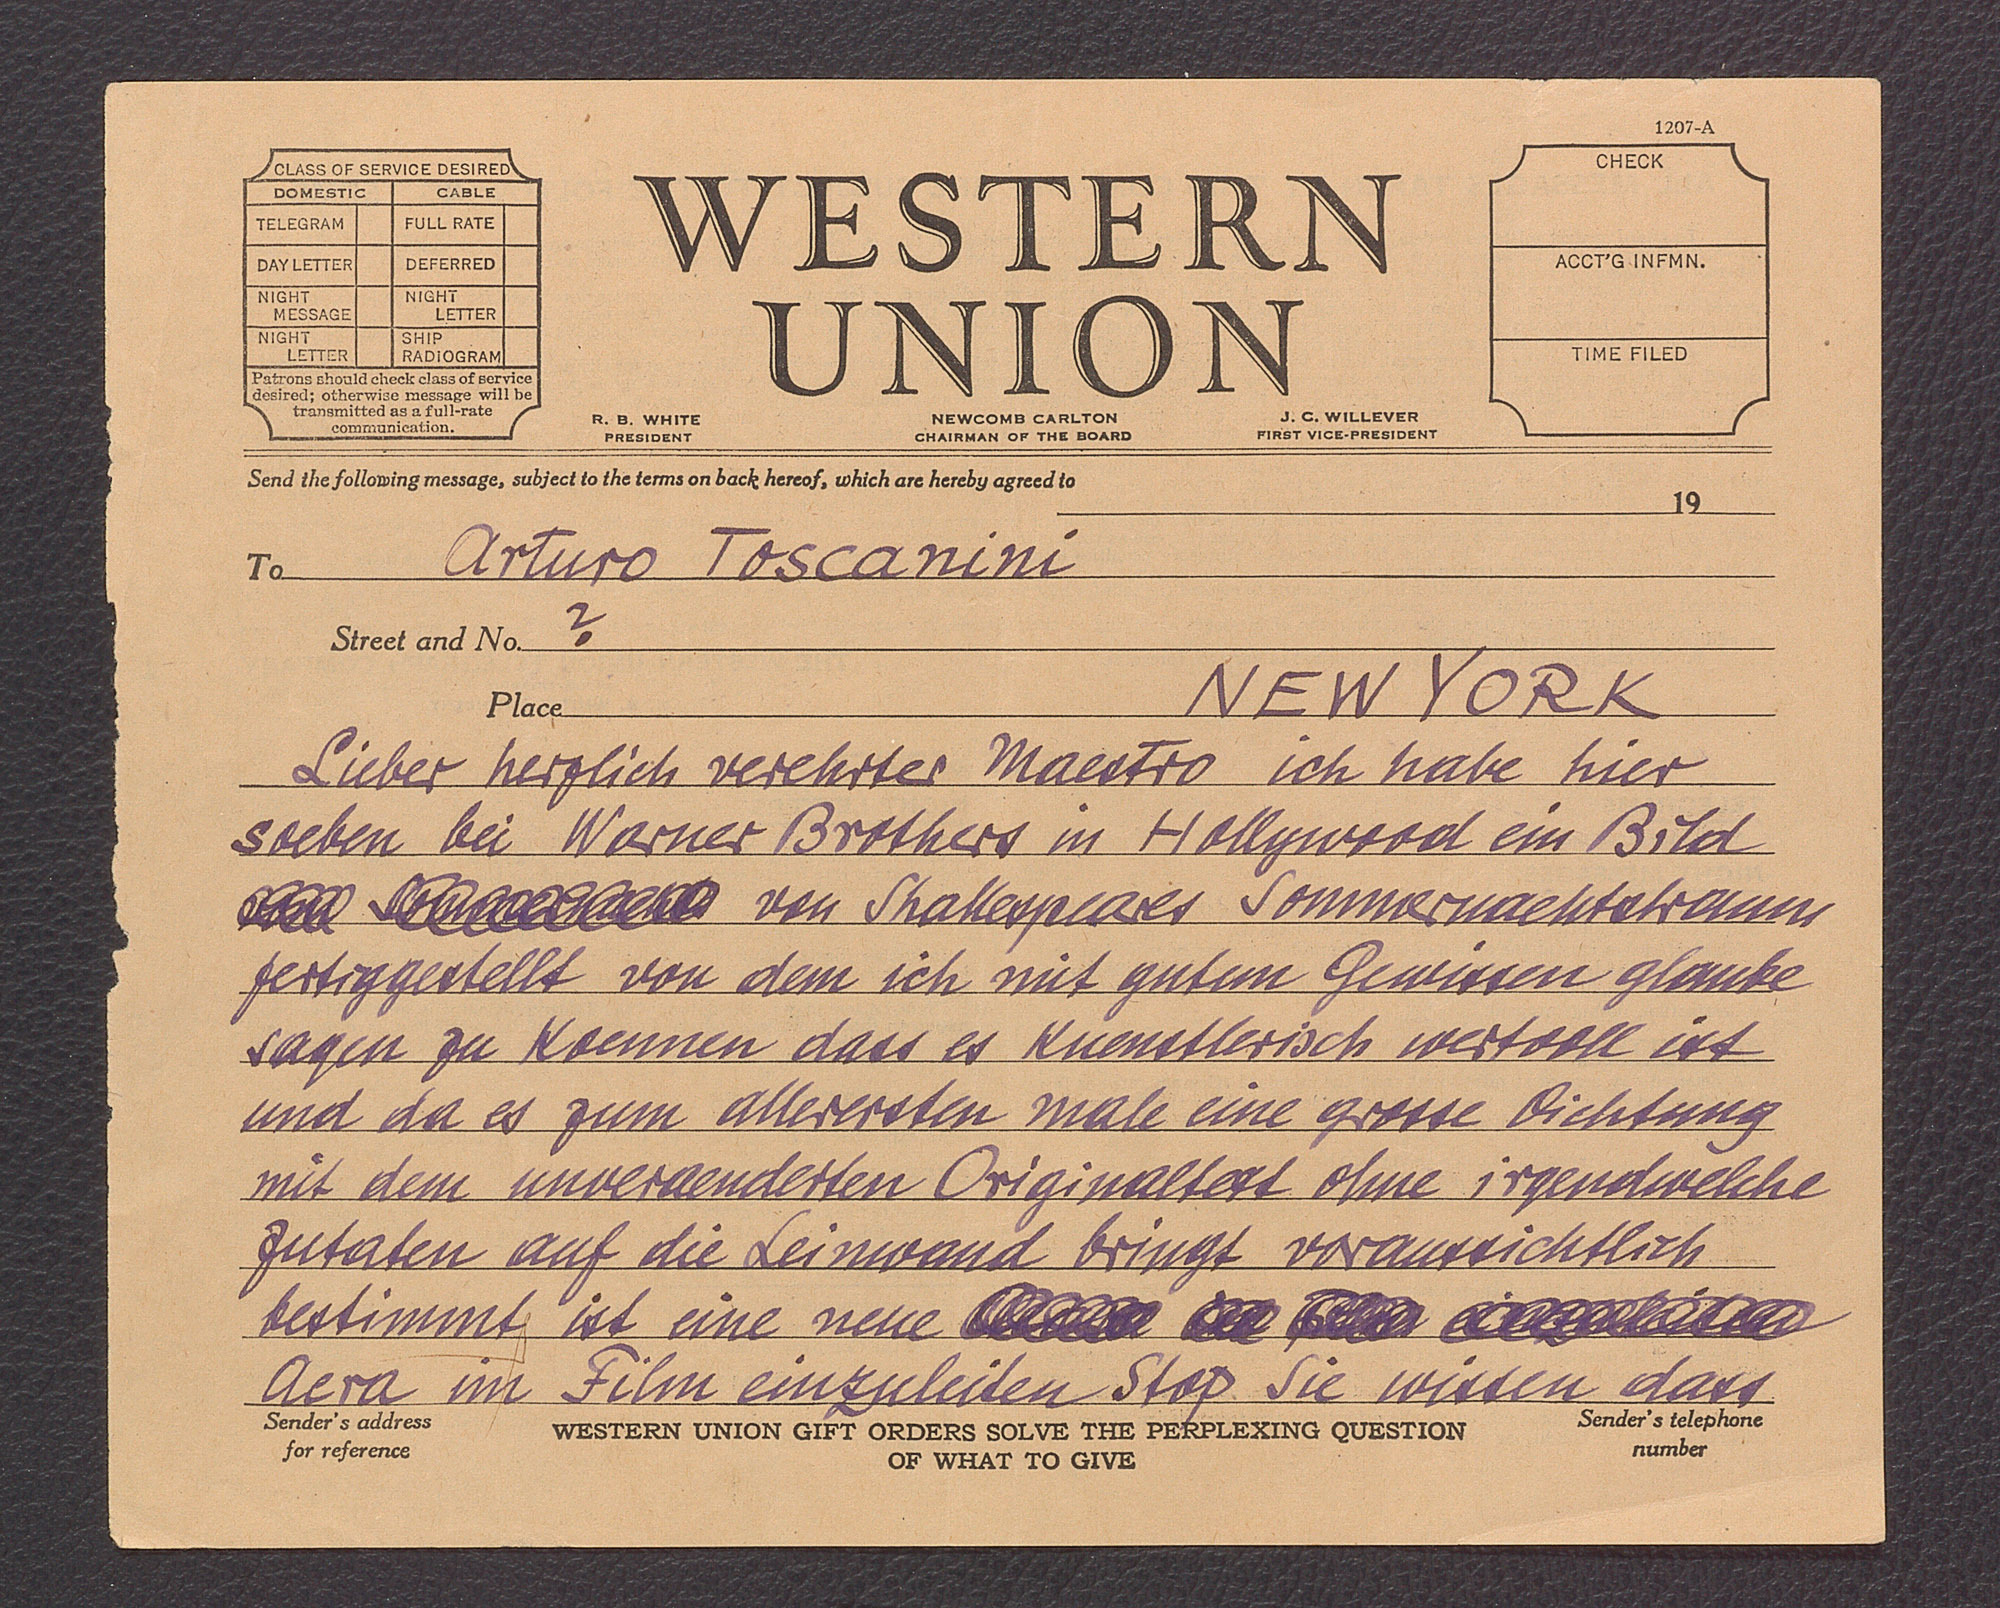 1207-A
CLASS OF SERVICE DESIRED
DOMESTIC CABLE
TELEGRAM FULL RATE
DAY LETTER DEFERRED
NIGHT MESSAGE NIGHT LETTER
NIGHT LETTER SHIP RADIOGRAM
Patrons should check class of service
desired; otherwise message will be
transmitted as a full-rate
communication.
WESTERN
UNION
R. B. WHITE
PRESIDENT
NEWCOMB CARLTON
CHAIRMAN OF THE BOARD
J. C. WILLEVER
FIRST VICE-PRESIDENT
CHECK
ACCT'G INFMN.
TIME FILED
Send the following message, subject to the terms on back hereof, which are hereby agreed to
19
To Arturo Toscanini
Street and No. ?
Place NEW YORK
Lieber herzlich verehrter Maestro ich habe hier
soeben bei Warner Brothers in Hollywood ein Bild
von Shakespeares Sommernachtstraum
fertiggestellt von dem ich mit gutem Gewissen glaube
sagen zu koennen dass es kuenstlerisch wertvoll ist
und da es zum allerersten male eine grosse Dichtung
mit dem unveraenderten Originaltext ohne irgendwelche
Zutaten auf die Leinwand bringt voraussichtlich
bestimmt ist eine neue
Aera im Film einzuleiten Stop Sie wissen dass
Sender's address
for reference
WESTERN UNION GIFT ORDERS SOLVE THE PERPLEXING QUESTION
OF WHAT TO GIVE
Sender's telephone
number